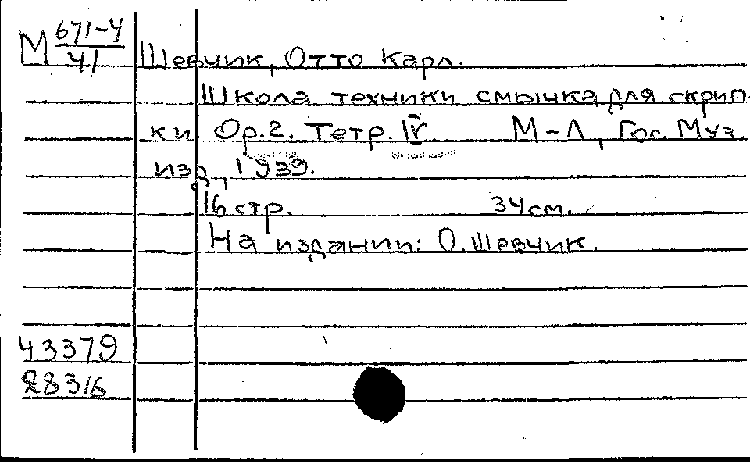 М 671-4/41 Шевчик, Отто Карл.
Школа техники смычка для скрип-
ки Ор.2. Тетр. IV. М-Л, Гос. Муз.
изд., 1939.
16 стр. 34 см.
На издании: О. Шевчик.
43379
28316